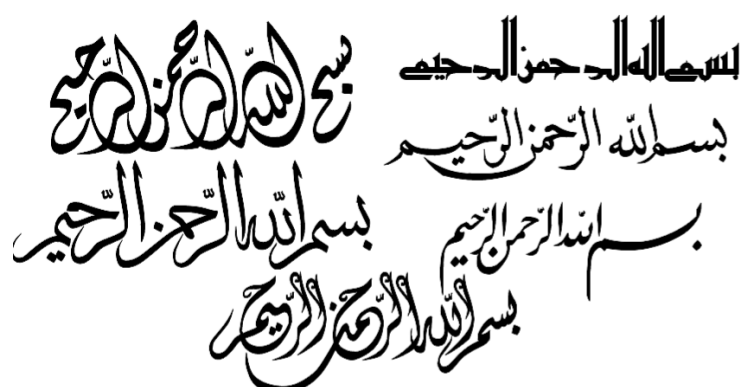 بسم الله الرحمن الرحيم
بسم الله الرَّحمن الرَّحيم
بسم اللّه الرّحمن الرّحيم
بسم اللّه الرّحمن الرّحيم
بسم الله الرّحمن الرّحيم
بسم اللّه الرّحمن الرّحيم